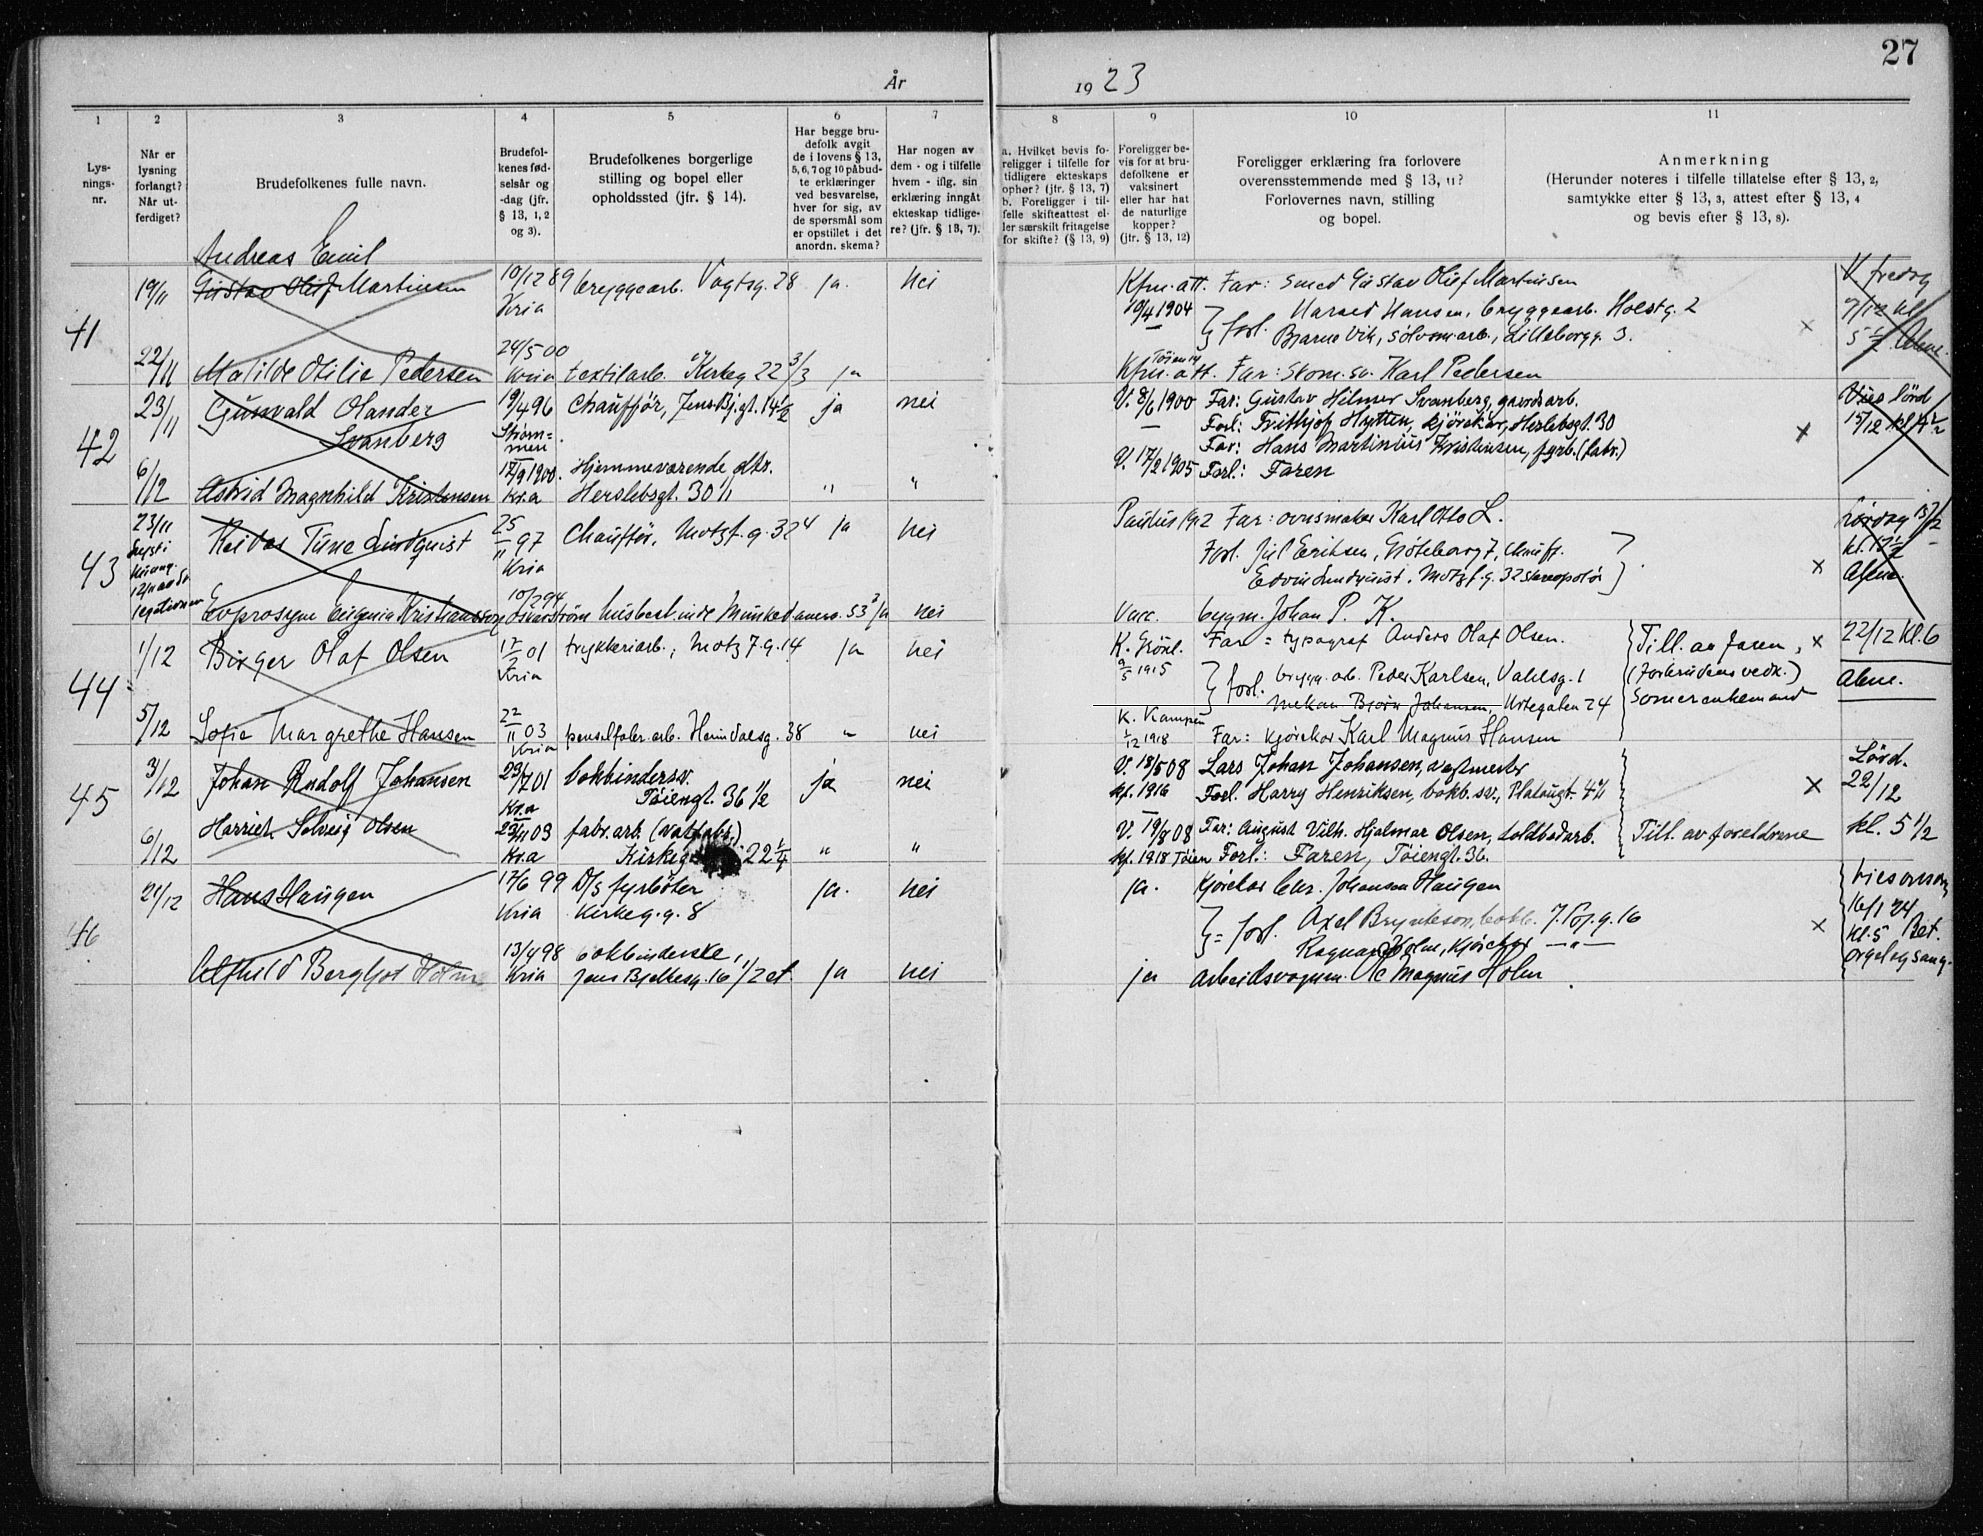 27
År 1923
1 2 3 4 5 6 7 8 9 10 11
Lys-
nings-
nr.
Når er
lysning
forlangt?
Når ut-
ferdiget?
Brudefolkenes fulle navn.
Brudefol-
kenes fød-
selsår og
-dag (jfr.
§ 13, 1, 2
og 3).
Brudefolkenes borgerlige
stilling og bopel eller
opholdssted (jfr. § 14).
Har begge bru-
defolk avgit
de i lovens § 13,
5, 6, 7 og 10 påbud-
te erklæringer
ved besvarelse,
hver for sig, av
de spørsmål som
er opstillet i det
anordn. skema?
Har nogen av
dem - og i tilfelle
hvem - iflg. sin
erklæring inngått
ekteskap tidlige-
re? (jfr. § 13, 7).
a. Hvilket bevis fo-
religger i tilfelle for
tidligere ekteskaps
ophør? (jfr. § 13, 7)
b. Foreligger i til-
felle skifteattest el-
ler særskilt fritagelse
for skifte? (§ 13, 9)
Foreligger be-
vis for at bru-
defolkene er
vaksinert
eller har hat
de naturlige
kopper?
(jfr. § 13, 12)
Foreligger erklæring fra forlovere
overensstemmende med § 13, 11?
Forlovernes navn, stilling
og bopel.
Anmerkning
(Herunder noteres i tilfelle tillatelse efter § 13, 2,
samtykke efter § 13, 3, attest efter § 13, 4
og bevis efter § 13, 8).
Andreas Emil
41 19/11 Gustav Olif Martinsen 10/12 89 bryggearb. Vogtsg. 28 ja. Nei Kfm. att. Far: Smed Gustav Olief Martinsen V. fredag
Kria 19/4 1904 forl. Harald Hansen, bryggearb. Holstg. 2 7/12 kl
Bjarne Vik, sølvomarb., Lilleborgg. 3. × 5 1/2 Alene.
22/11 Matilde Otilie Pedersen 24/5 00 Kria textilarb. Kirkeg 22 3/3 ja Kfm. att. Tøien Far: Skom. sv. Karl Pedersen
42 23/11 Gunvald Olander 19/4 96 Chauffør, Jens Bj. gt. 14 1/2 ja nei V. 8/6 1900 Far: Gustav Hilmer Svanberg, gaardsarb. Vies lörd
Svanberg Strøm=
men Forl: Frithjof Hytten, kjørekar, Herslebsgt. 30 × 15/12 kl 4 1/2
Far: Hans Martinius Kristensen, fyrb. (fabr.)
6/12 Astrid Magnhild Kristensen 17/9 1900. Kr.a Hjemmeværende dtr.
Herslebsgt. 30 II " " V. 17/2 1905 Forl.: Faren
43 23/11 Reidar Tune Lindquist 25/11 97 Kria Chauffør, Motzf. g. 32 4 ja nei Paulus 1912 Far: ovnsmaker Karl Otto L. Lørdag 15/12
Forl. Jul Eriksen, Gøteborg 7, Chauff. kl.
Edvin Lundquist. Motzf. g. 32 stereopotør × Alene.
Eugenia Kristiansson 10/2 94 Oskarström husbest. inde Munkedamsv. 53 ja nei Vacc. bygm. Johan P. K.
44 1/12 Birger Olaf Olsen 17/2 01 Kria trykkeriarb., Motz f. g. 14 ja nei K. Grönl. 9/5 1915 Far = typograf Anders Olaf Olsen. Till. av faren, × 22/12 kl. 6
forl. brygg. arb. Peder Karlsen, Vahlsg. 1 (forbrudens vedk.) Alene.
mekan Bjørn Johansen, Urtegaten 24 som er enkemand
5/12 Sofie Margrethe Hansen 22/11 03 Kria penselfabr. arb. Heimdalsg. 38 " nei K. Kampen 1/12 1918 Far: kjörekar Karl Magnus Hansen
45 3/12 Johan Rudolf Johansen 29/7 01 Kr.a bokbindersv.
Tøiengt. 36 1/2 ja nei V. 18/5 08 Lars Johan Johansen, vegtmester Lörd.
kf. 1916 Forl. Harry Henriksen, bokb. sv., Platougt. × 22/12
6/12 Harriet Solveig Olsen 23/11 03 Kr.a fabr. arb. (vatfabr.)
Kirkeg 22 1/4 " " V. 19/8 08 Far: August Vilh. Hjalmar Olsen, toldbodarb. Till. av foreldrene kl. 5 1/2
kf. 1918 Tøien Forl.: Faren, Tøiengt. 36.
46 21/12 Hans Haugen 17/6 99 Kria D/s fyrbøter
Kirkeg. g. 8 ja. nei ja. Kjörekar Chr. Johansen Haugen Vies onsdag
= forl. Axel Brynteson, bokb. J. Bj. g. 16 × 16/1 24
Ragnar Holm, kjörekar —"— kl. 5 Bet.
Alfhild Bergljot Holm 13/4 98 Kria bokbinderske,
Jens Bjelkesg. 16 1/2 et. ja nei ja arbeidsvognm. Ole Magnus Holm orgel og sang.